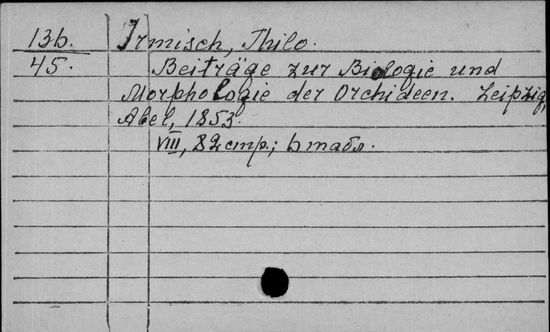 13б. Irmisch, Thilo.
45. Beiträge zur Biologie und
Morphologie der Orchideen. Leipzig,
Abel, 1853.
VIII, 82 стр.; 6 табл.